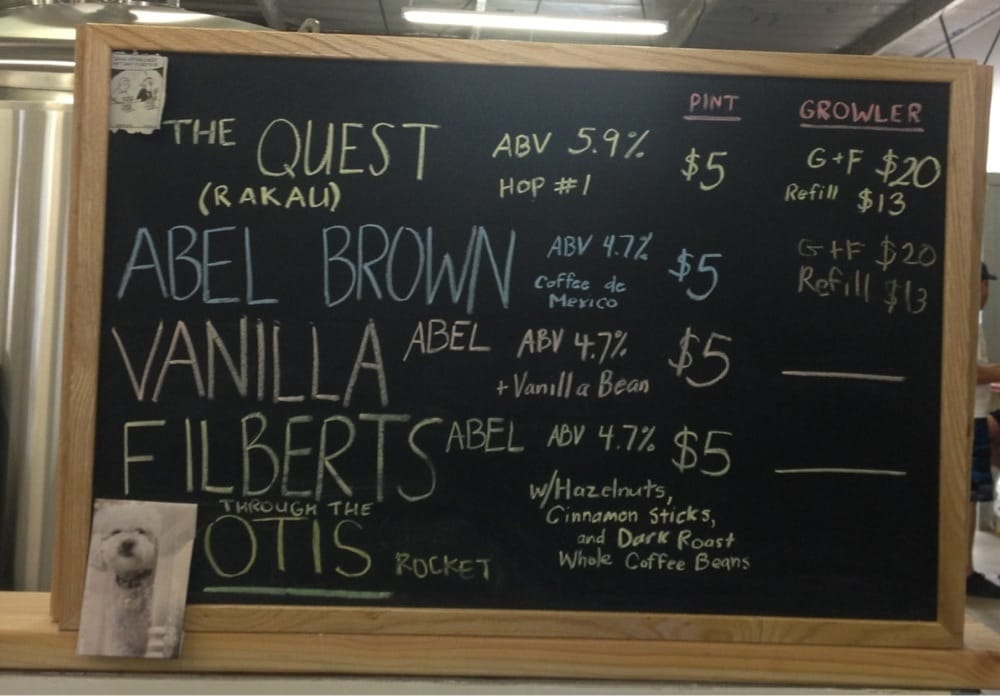 PINT GROWLER
THE QUEST ABV 5.9% $5 G+F $20
(RAKAU) HOP #1 Refill $13
ABEL BROWN ABV 4.7% $5 G+F $20
Coffee de Refill $13
Mexico
VANILLA ABEL ABV 4.7% $5
+ Vanilla Bean
FILBERTS ABEL ABV 4.7% $5
w/Hazelnuts,
THROUGH THE Cinnamon Sticks,
OTIS ROCKET and Dark Roast
Whole Coffee Beans